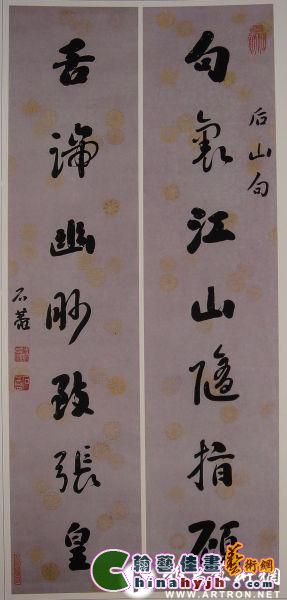 后山句
句裏江山隨指顧
舌端幽眇致張皇
石菴
翰藝佳畫藝術網
Chinahyjh.com
WWW.ARTRON.NET